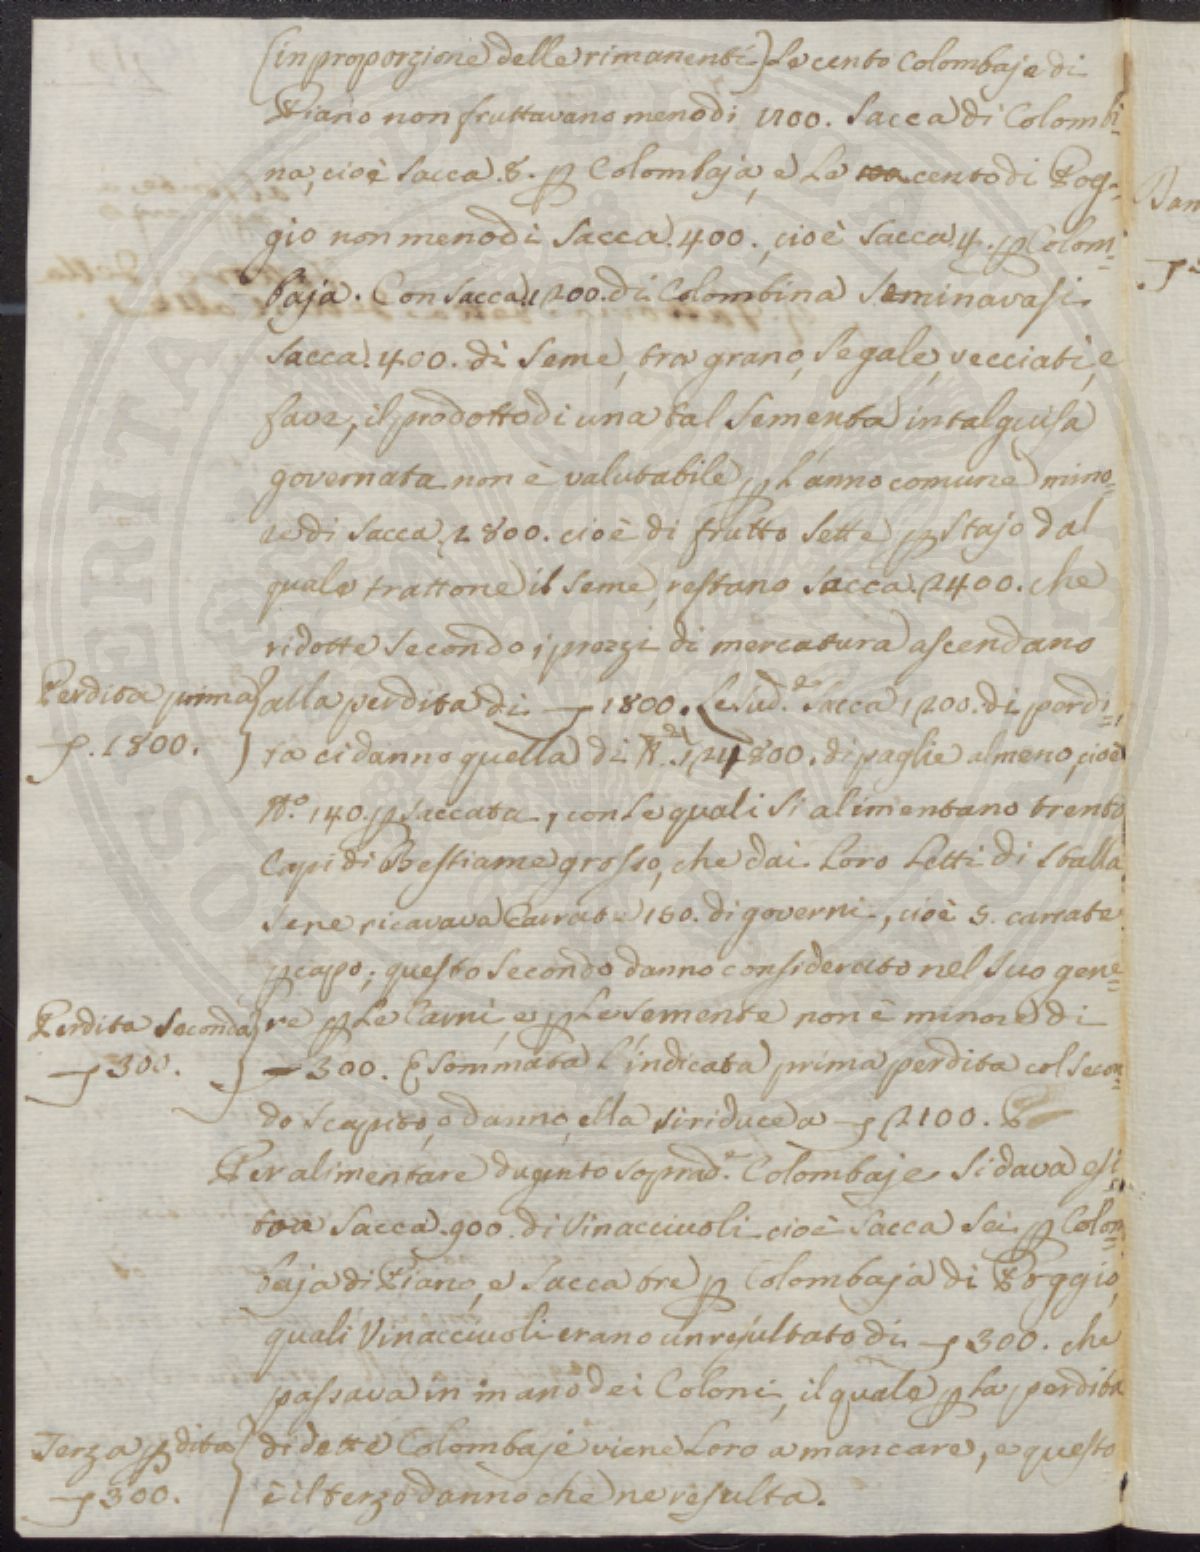 (in proporzione delle rimanenti) Le cento Colombaje di
Piano non fruttavano meno di Sacca di Colombi-
na, cioè Sacca 8. p Colombaja, e Le cento di Pog-
gio non meno di Sacca 400., cioè Sacca 4. p Colom=
baja. Con Sacca 1200. di Colombina Seminavasi
Sacca 400. di Seme, tra grano, Segale, vecciati, e
fave, il prodotto di una tal Sementa in tal guisa
governata non è valutabile, p L'anno comune mino=
re di Sacca 2800. cioè di frutto Sette p Stajo dal
quale trattone il Seme, restano Sacca 2400. che
ridotte Secondo i prezzi di mercatura ascendano
Perdita prima
alla perdita di 1800. Le Sud.e Sacca 1200. di perdi=
1800.
ta ci danno quella di 800. di paglie almeno, cioè
140. p Saccata, con Le quali Si alimentano trenta
Capi di Bestiame grosso, che dai Loro Letti di Stalla
Se ne ricavava Carrate 150. di governi, cioè 5. carrate
p capo; questo Secondo danno considerato nel Suo gene=
Perdita Seconda
re p Le Carni, e p Le Semente non è minore di
300.
300. E Sommata l'indicata prima perdita col Secon=
do Scapito, o danno, ella si riduce a 2100.
Per alimentare dugento soprad.e Colombaje Si dava
Sacca 900. di Vinacciuoli cioè Sacca Sei p Colom=
baja di Piano, e Sacca tre p Colombaja di Poggio,
quali Vinacciuoli erano un resultato di 300. che
passava in mano dei Coloni, il quale p La perdita
Terza pdita
di dette Colombaje viene Loro a mancare, e questo
300.
è il terzo danno che ne resulta.